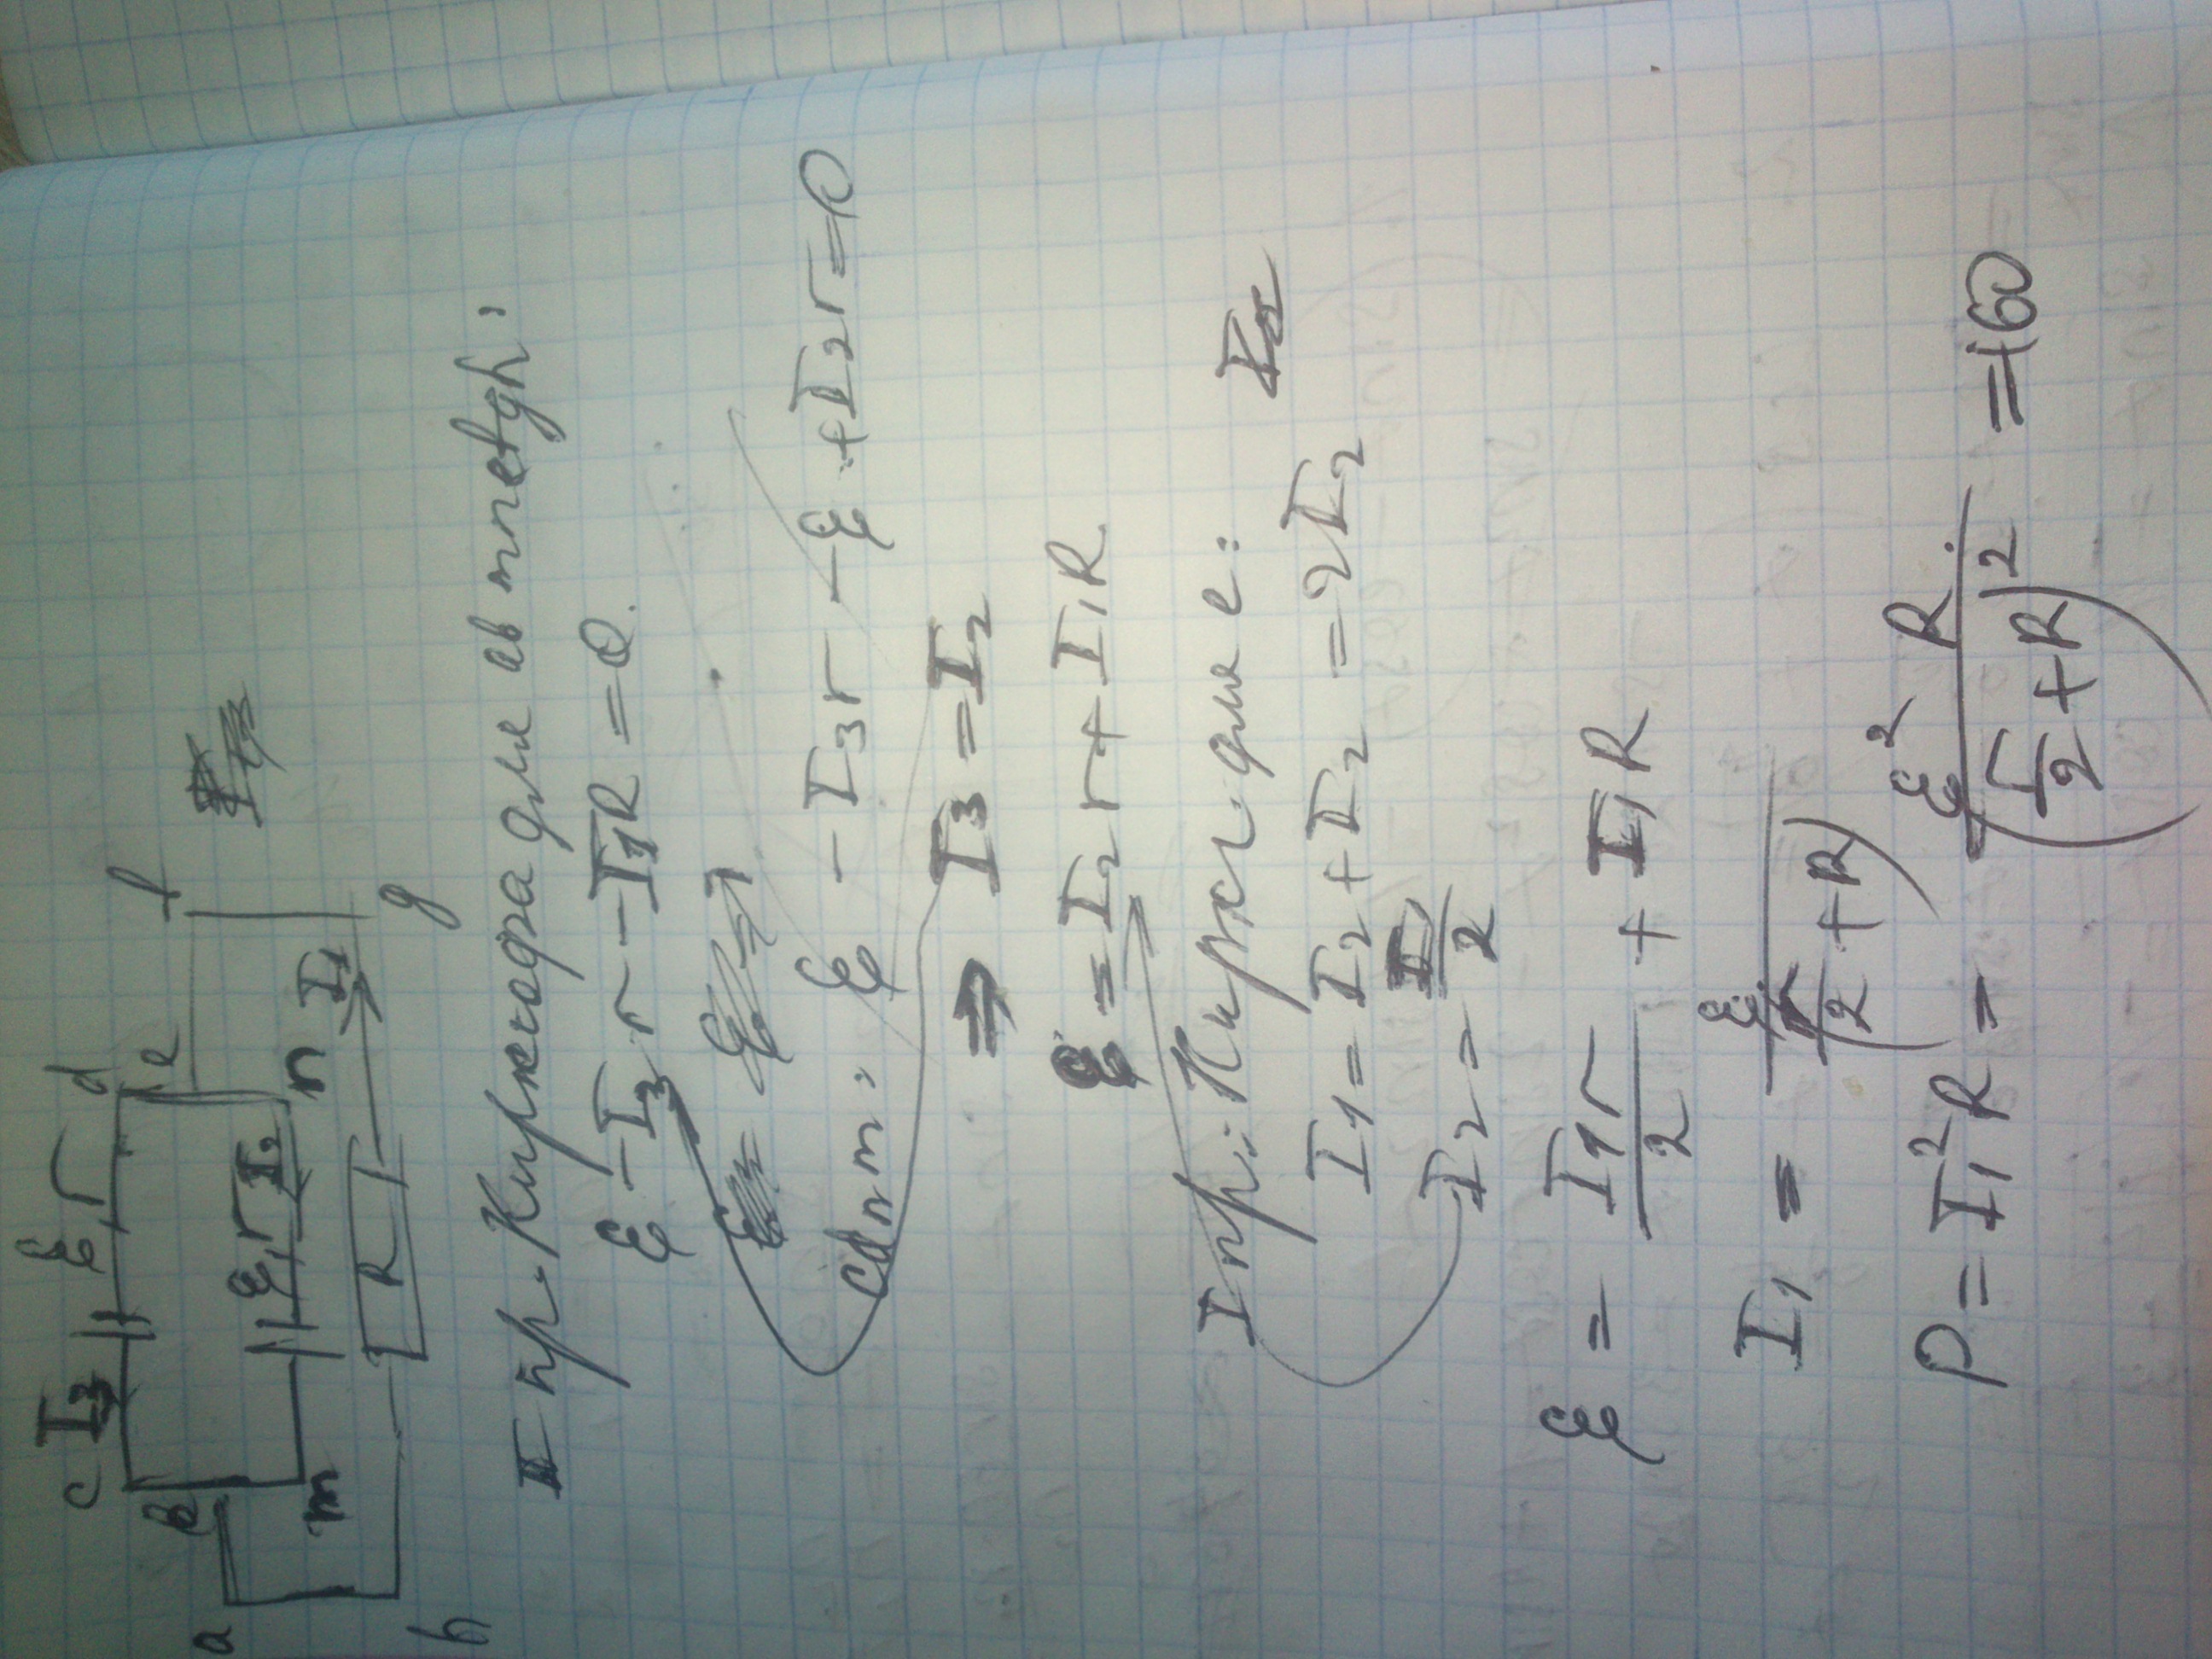 c I₃ ℰ, r d
a k e f
m ℰ, r I₂ n
b R I₁ g
II пр. Кирхгофа для ab metgh:
ℰ - I₃r - I₁R = 0.
cdnm: ℰ - I₃r - ℰ + I₂r = 0
⇒ I₃ = I₂
ℰ = I₂r + I₁R
I пр. Кирхг. для e:
I₁ = I₂ + I₂ = 2I₂
I₂ = I₁/2
ℰ = I₁r/2 + I₁R
I₁ = ℰ/(r/2 + R)
P = I₁²R = ℰ²R/(r/2 + R)² = 160